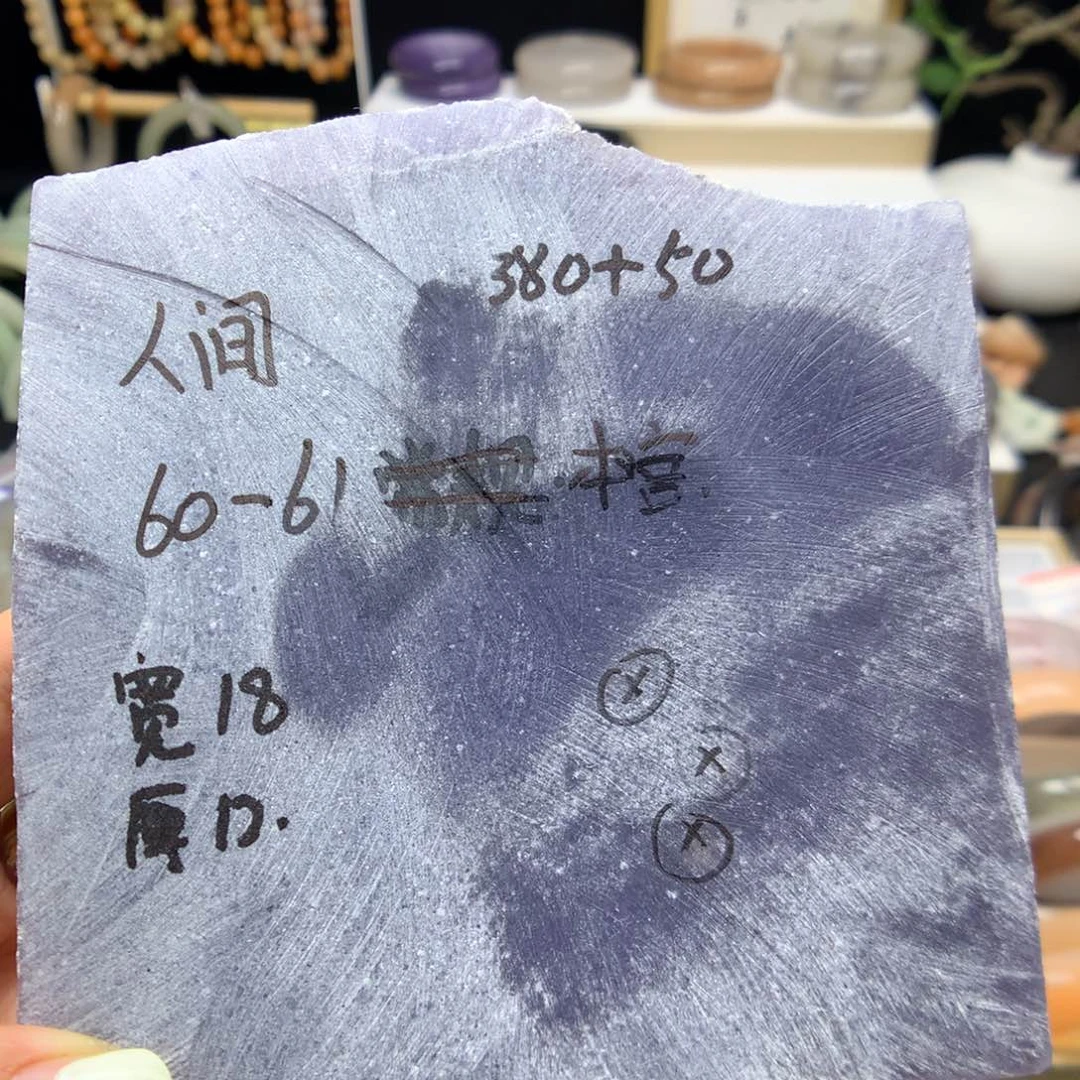 380+50
人间
60-61 中宫.
宽 18
厚 12.
ⓧ
ⓧ
ⓧ